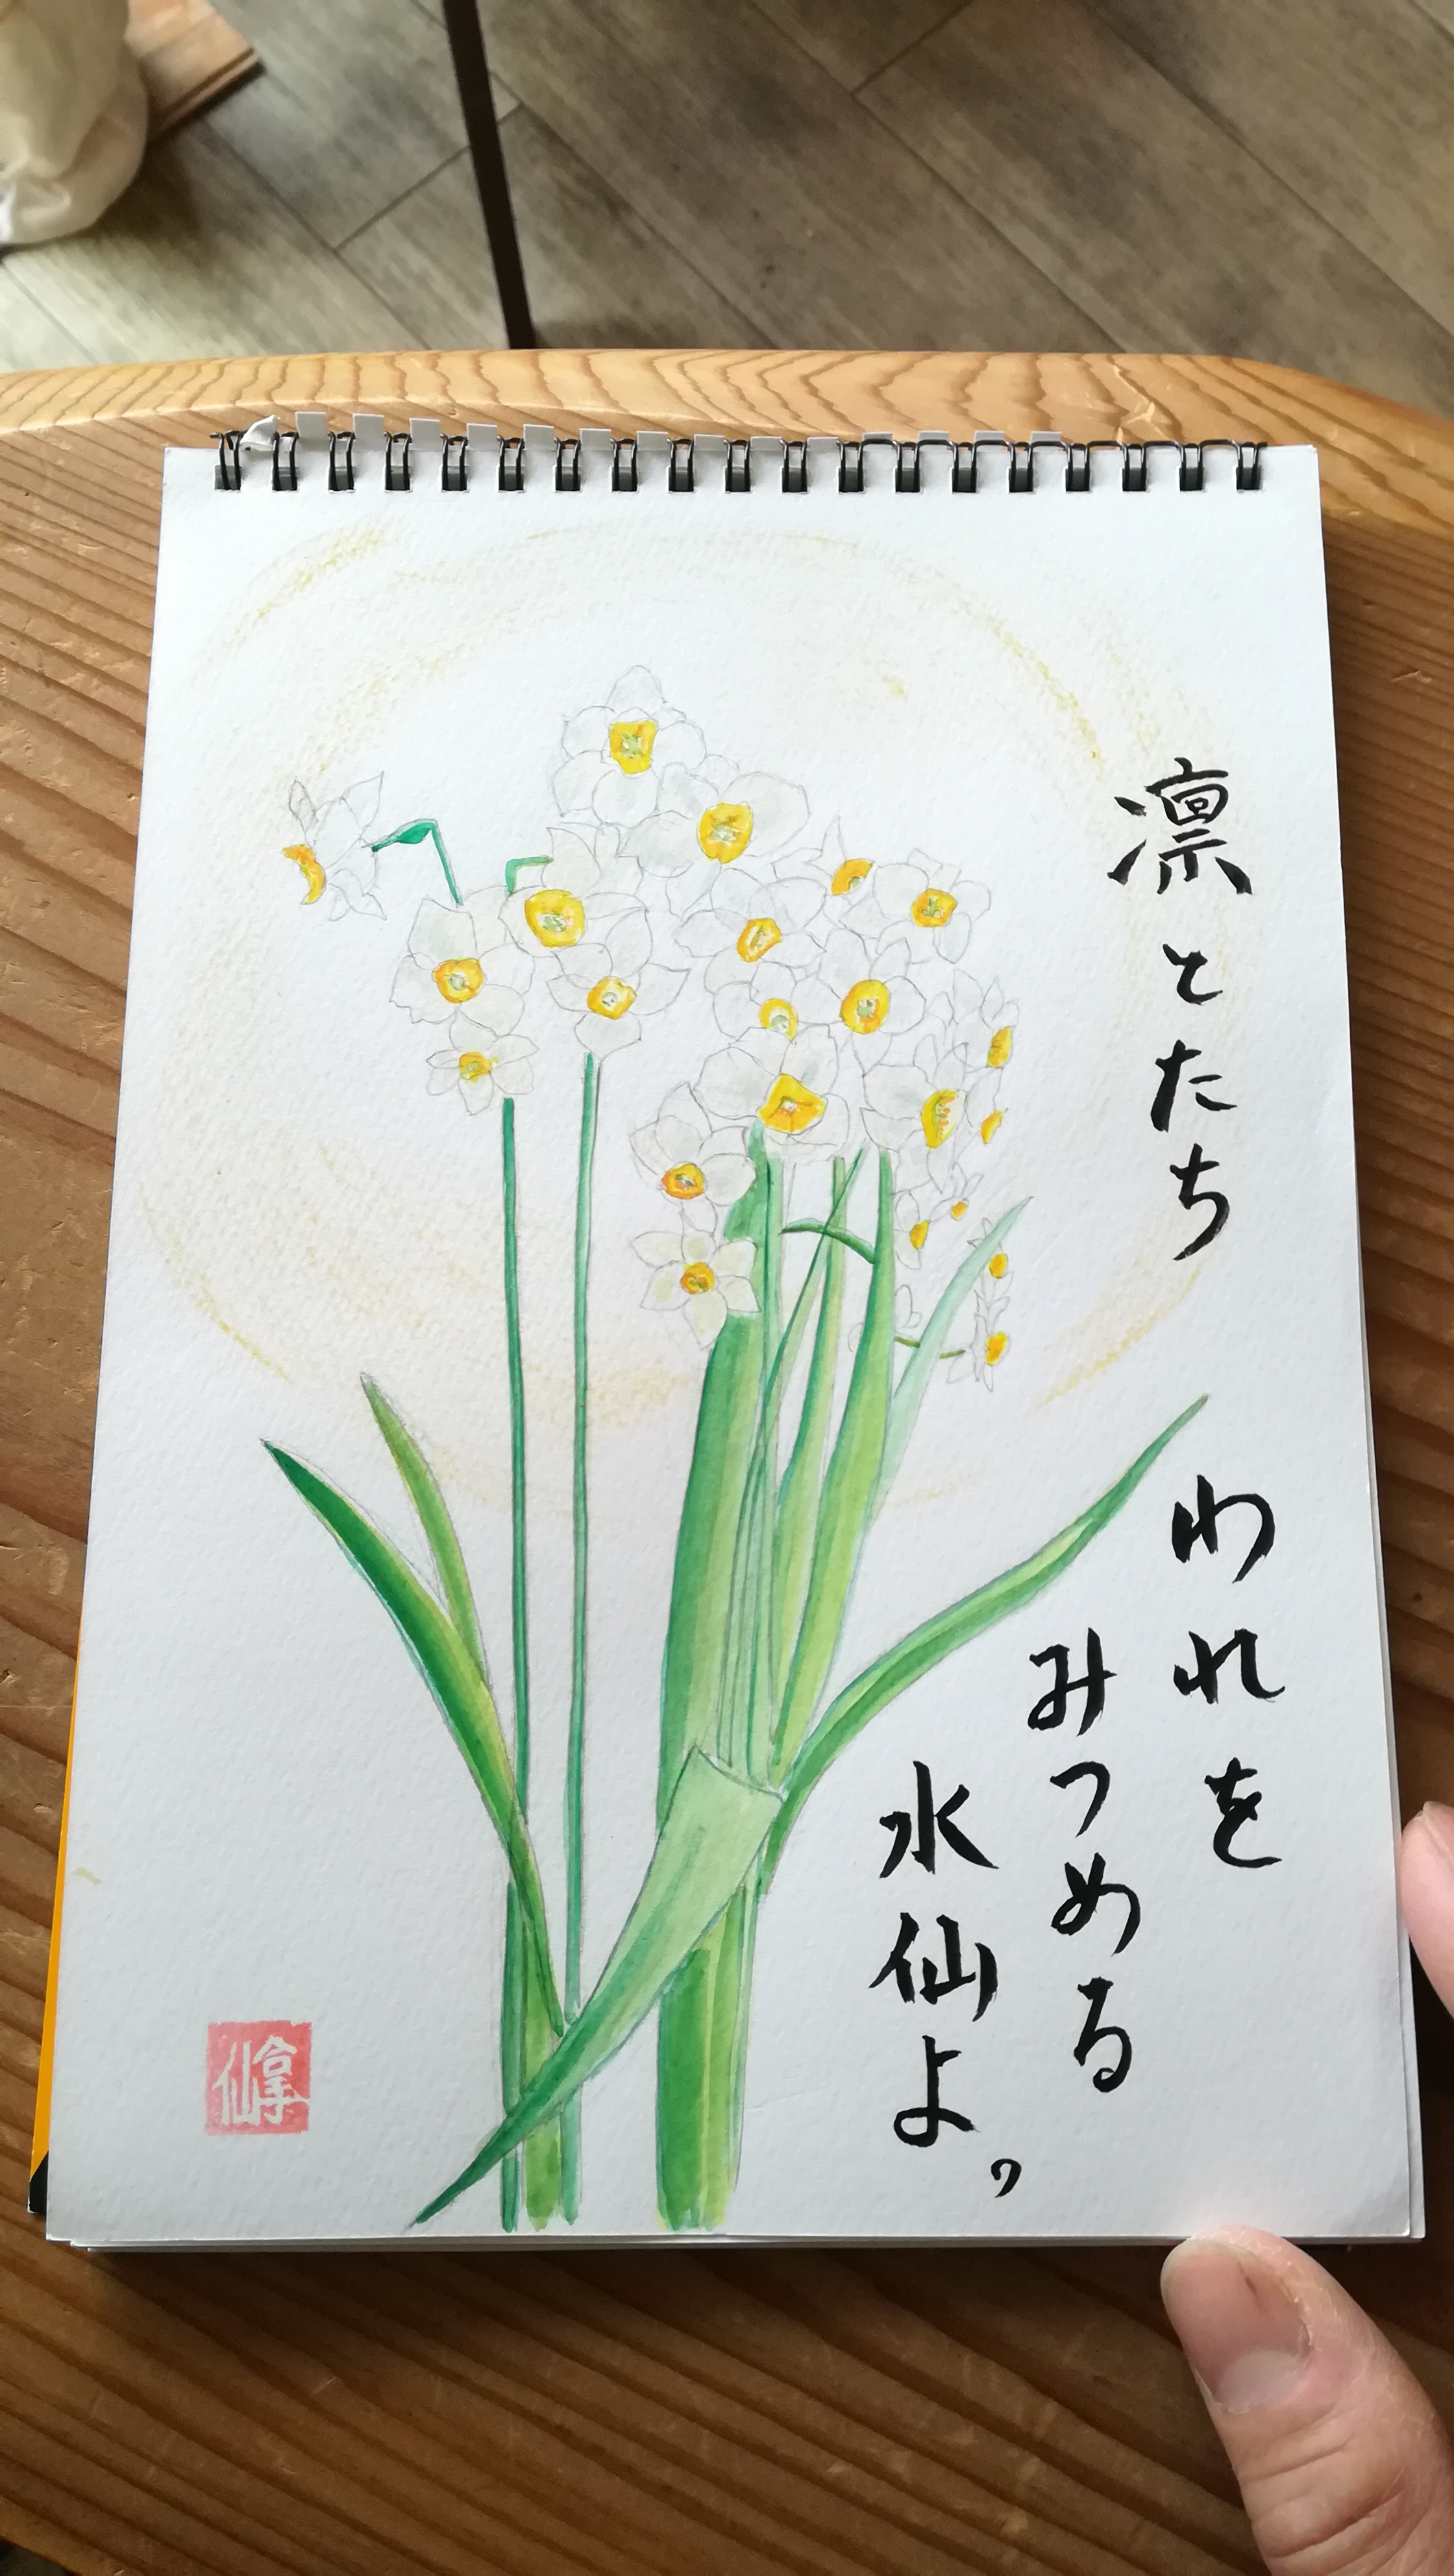 凛とたち
われを
みつめる
水仙よ、